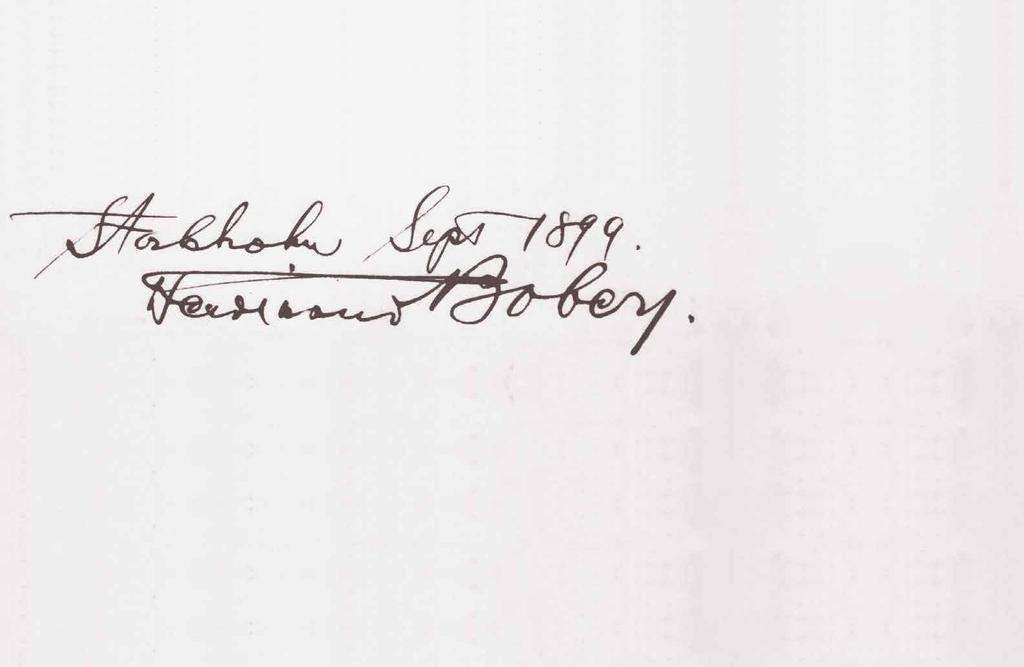 Stockholm Sept 1899.
Ferdinand Boberg.